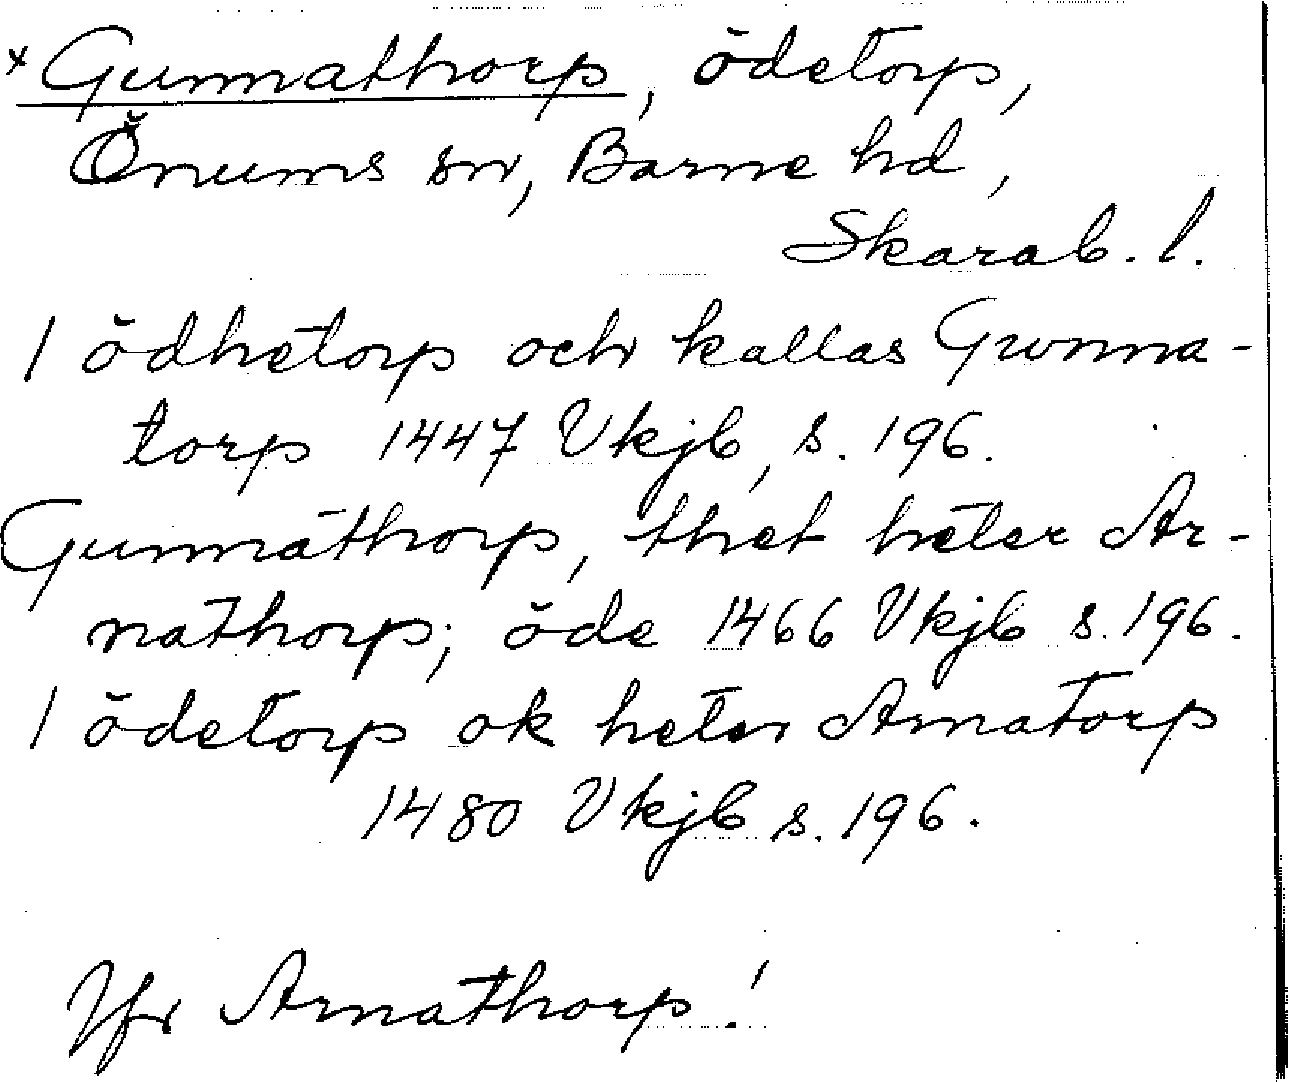 × Gunnathorp, ödetorp,
Önums sn, Barne hd,
Skarab. l.
1 ödhetorp och kallas Gunna-
torp 1447 Vkjb, s. 196.
Gunnathorp, thet heter Ar-
nathorp; öde 1466 Vkjb s. 196.
1 ödetorp ok heter Arnatorp
1480 Vkjb s. 196.
Jfr Arnathorp!